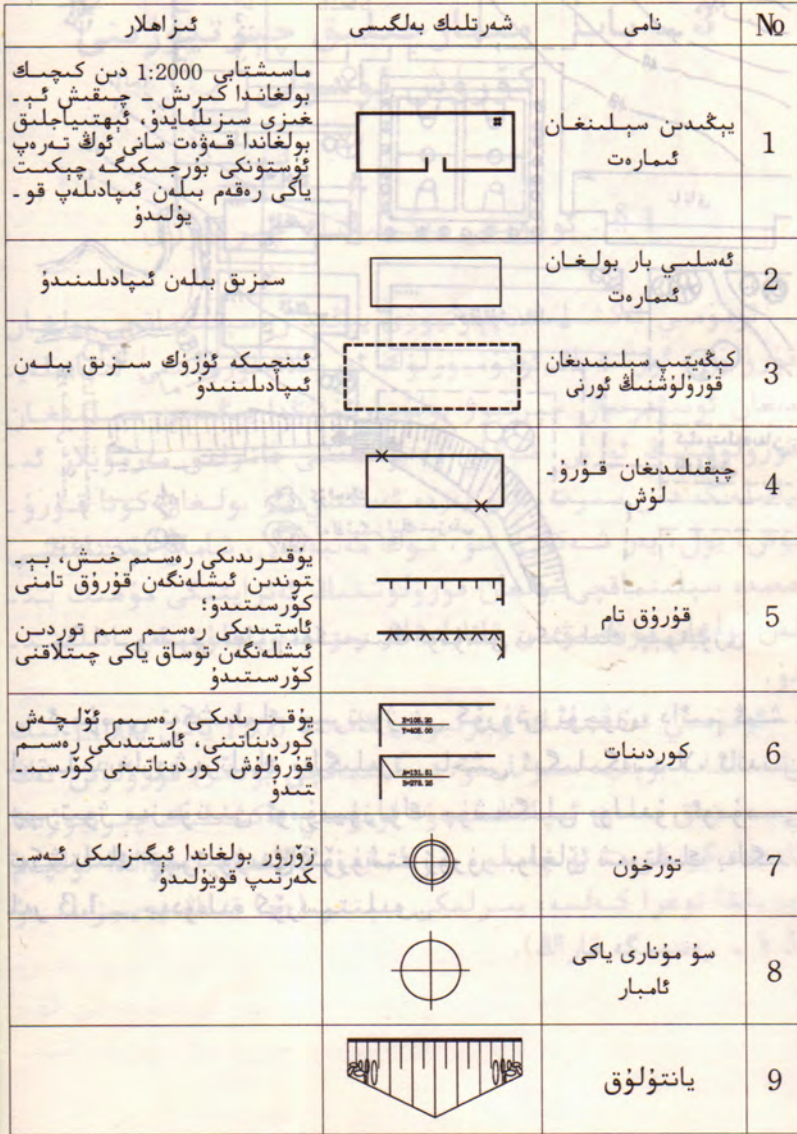 № نامى شەرتلىك بەلگىسى ئىزاھلار
1
يېڭىدىن سېلىنغان
ئىمارەت
ماسىشتابى 1:2000 دىن كىچىك
بولغاندا كىرىش ـ چىقىش ئېـ
غىزى سىزىلمايدۇ، ئېھتىياجلىق
بولغاندا قەۋەت سانى ئوڭ تەرەپ
ئۈستۈنكى بۇرجىكىگە چېكىت
ياكى رەقەم بىلەن ئىپادىلەپ قوـ
يۇلىدۇ
2
ئەسلىي بار بولغان
ئىمارەت
سىزىق بىلەن ئىپادىلىنىدۇ
3
كېڭەيتىپ سېلىنىدىغان
قۇرۇلۇشنىڭ ئورنى
ئىنچىكە ئۈزۈك سىزىق بىلەن
ئىپادىلىنىدۇ
4
چېقىلىدىغان قۇرۇـ
لۇش
5
قورۇق تام
يۇقىرىدىكى رەسىم خىش، بېـ
توندىن ئىشلەنگەن قورۇق تامنى
كۆرسىتىدۇ؛
ئاستىدىكى رەسىم سىم توردىن
ئىشلەنگەن توساق ياكى چىتلاقنى
كۆرسىتىدۇ
6
كوردىنات
X=105.20
Y=405.00
A=131.51
B=278.25
يۇقىرىدىكى رەسىم ئۆلچەش
كوردىناتىنى، ئاستىدىكى رەسىم
قۇرۇلۇش كوردىناتىنى كۆرسىـ
تىدۇ
7
تۇرخۇن
زۆرۈر بولغاندا ئېگىزلىكى ئەسـ
كەرتىپ قويۇلىدۇ
8
سۇ مۇنارى ياكى
ئامبار
9
يانتۇلۇق